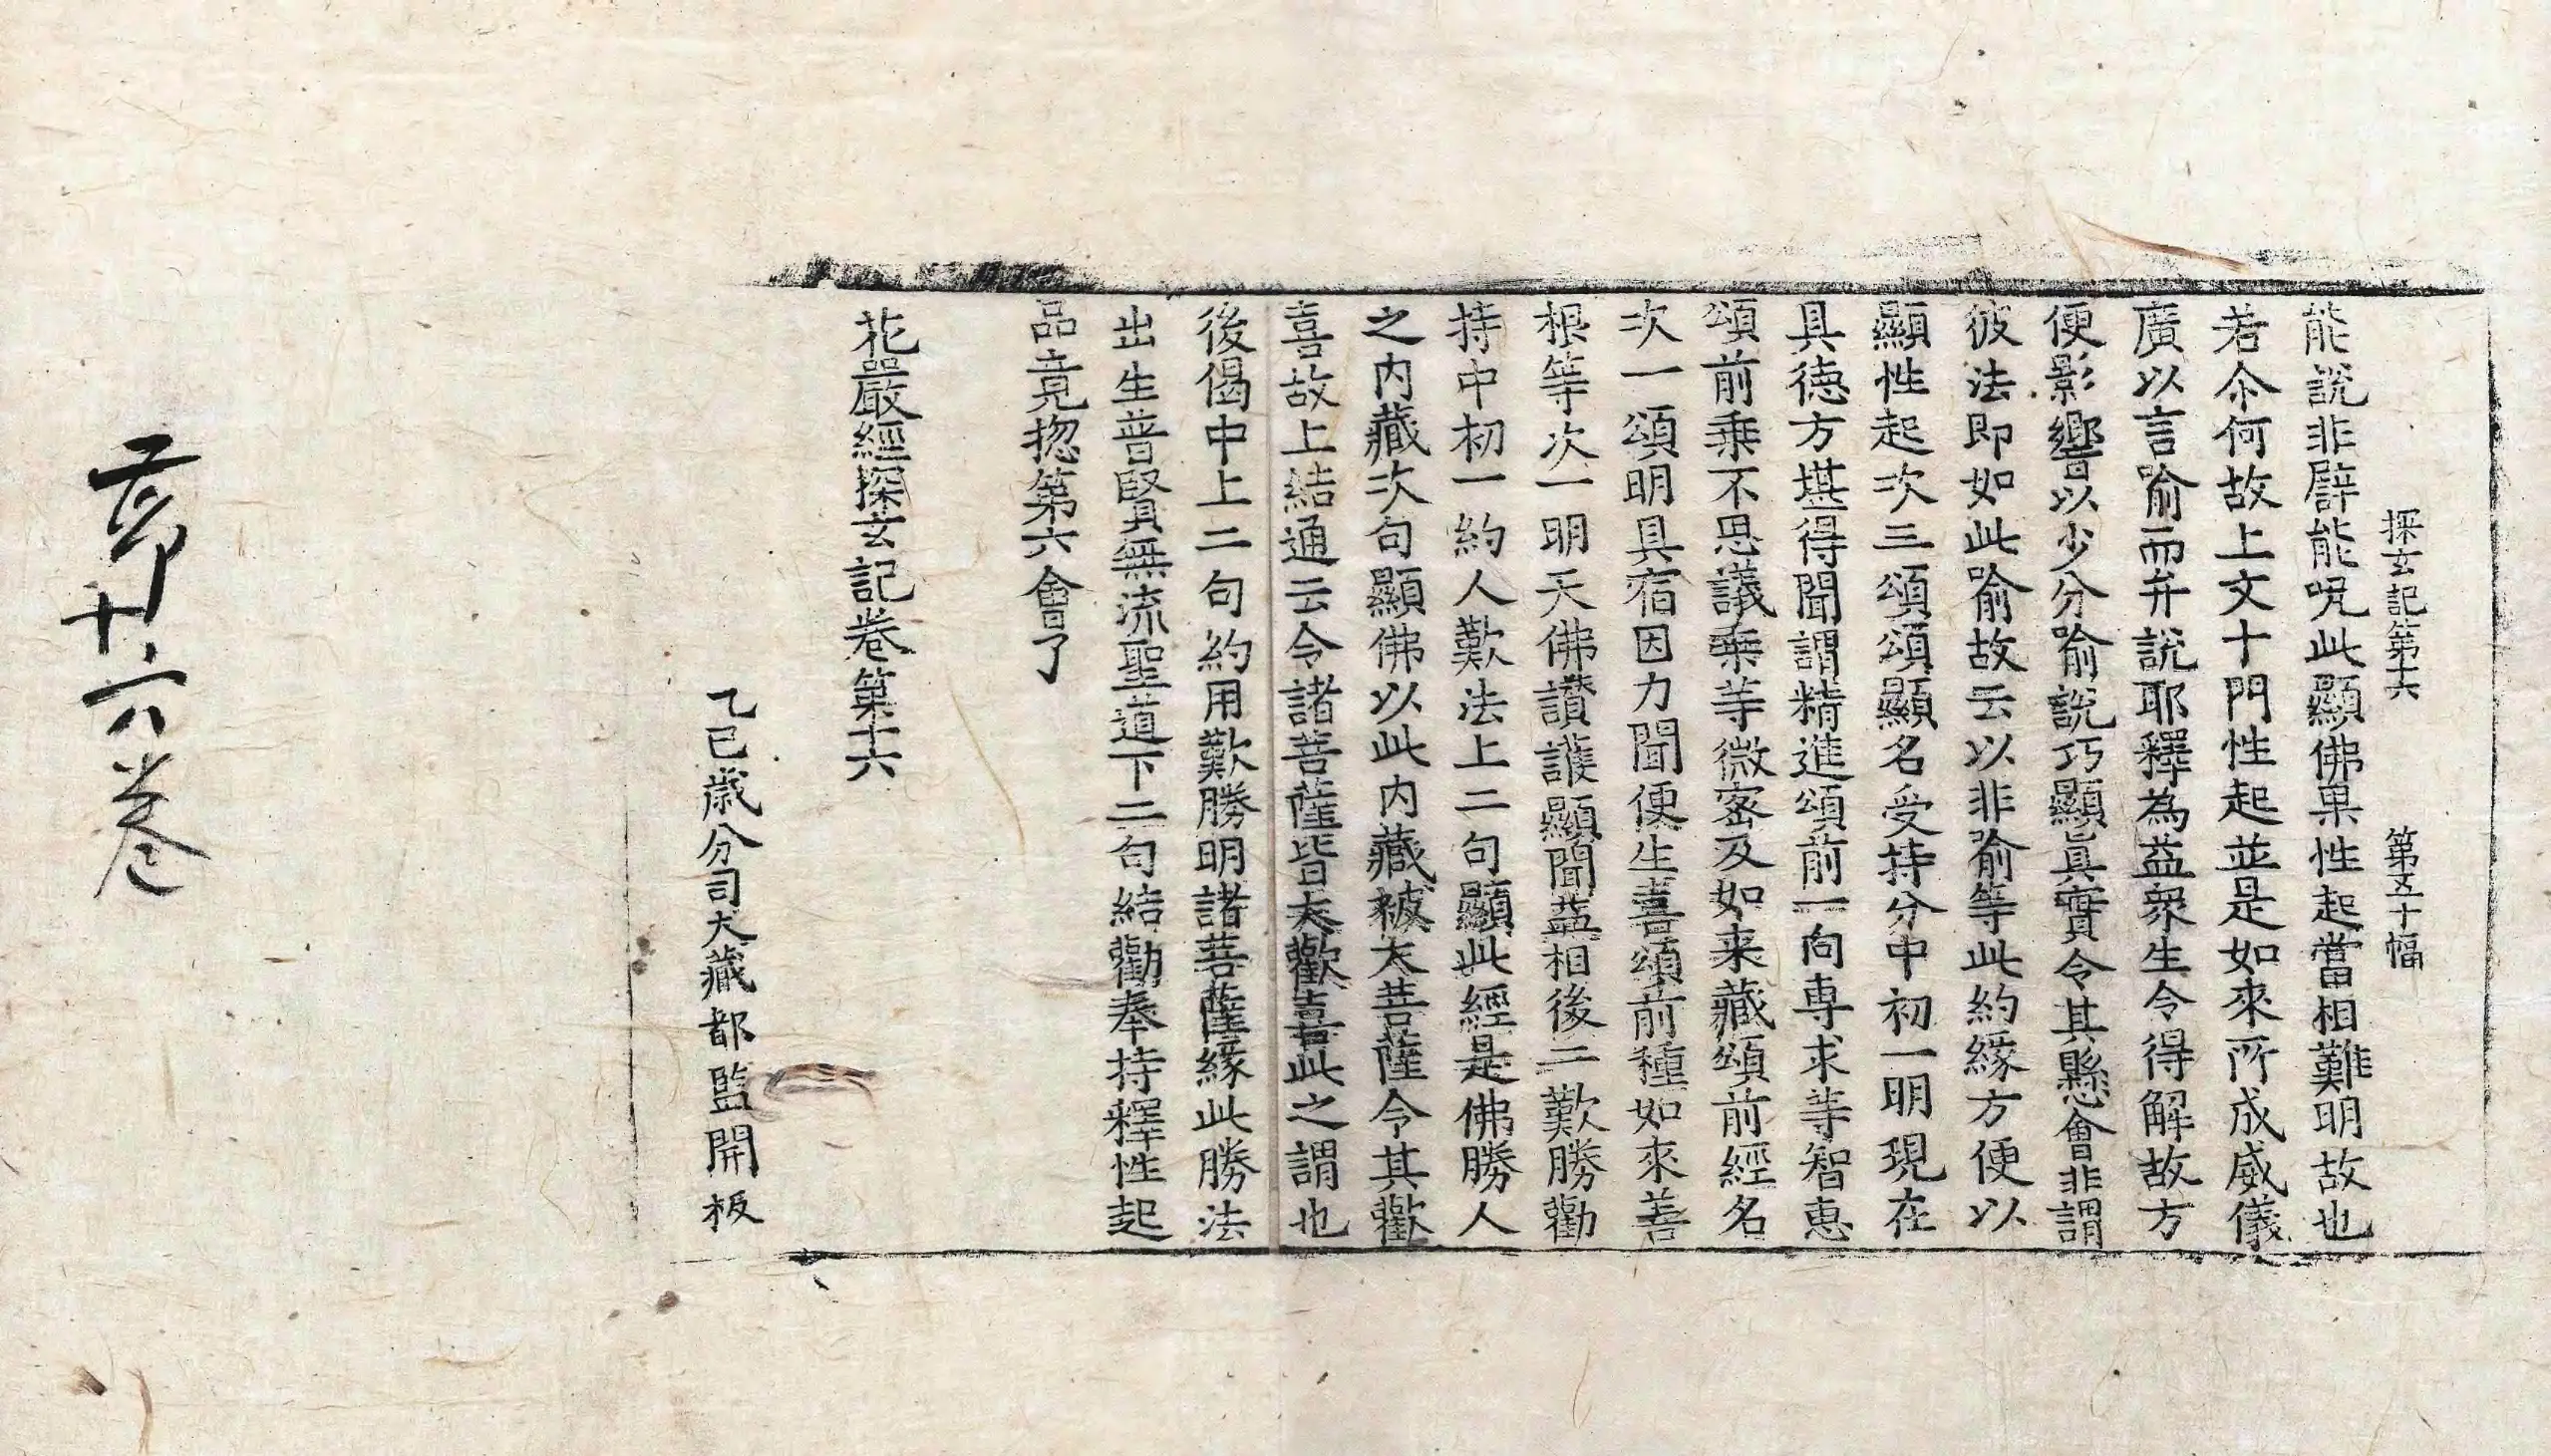 探玄記第十六 第五十幅
能說非辟能呪此顯佛果性起當相難明故也
若尒何故上文十門性起並是如來所成威儀
廣以言喻而弁說耶釋為益衆生令得解故方
便影響以少分喻說巧顯眞實令其懸會非謂
彼法即如此喻故云以非喻等此約緣方便以
顯性起次三頌頌顯名受持分中初一明現在
具德方堪得聞謂精進頌前一向專求等智惠
頌前乗不思議乗等微密及如来藏頌前經名
次一頌明具宿因力聞便生喜頌前種如來善
根等次一明天佛讃護顯聞益相後二歎勝勸
持中初一約人歎法上二句顯此經是佛勝人
之内藏次句顯佛以此内藏被大菩薩令其歡
喜故上結通云令諸菩薩皆大歡喜此之謂也
後偈中上二句約用歎勝明諸菩薩緣此勝法
出生普賢無流聖道下二句結勸奉持釋性起
品竟捴第六會了
花嚴經探玄記卷第十六
乙巳歲分司大藏都監開板
十六卷